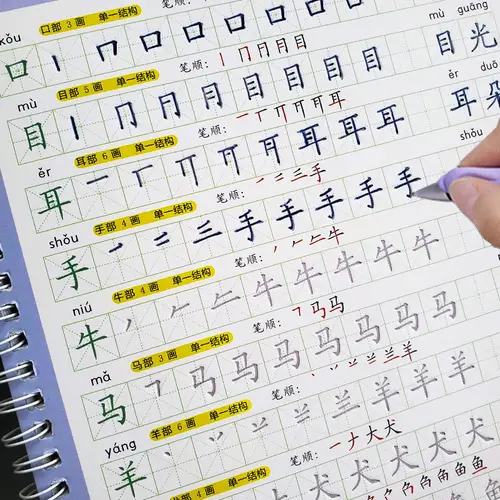 kǒu 口部 3 画 单一结构 笔顺:
口 丨 冂 口 口 口 口 口 口
mù 目部 5 画 单一结构 笔顺: 丨 冂 月 目 目 mù guāng
目 丨 冂 月 目 目 目 目 目 目光
ěr 耳部 6 画 单一结构 笔顺: 耳 ěr duǒ
耳 一 丅 耳 耳 耳 耳 耳朵
shǒu 手部 4 画 单一结构 笔顺: 一 二 三 手 shǒu
手 一 二 三 手 手 手 手 手
niú 牛部 4 画 单一结构 笔顺: 丿 𠂉 牛
牛 丿 𠂉 牛 牛 牛 牛 牛
mǎ 马部 3 画 单一结构 笔顺: ㇕ 马 马
马 ㇕ 马 马 马 马 马 马
yáng 羊部 6 画 单一结构 笔顺: 丶 丷 羊
羊 丶 丷 羊 羊 羊 羊
部 4 画 单一结构 笔顺: 一 ナ 大 犬
犬 犬 犬 犬
鱼 鱼